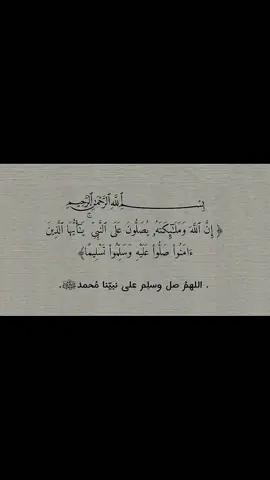 بِسْمِ اللَّهِ الرَّحْمَٰنِ الرَّحِيمِ
﴿ إِنَّ ٱللَّهَ وَمَلَـٰٓئِكَتَهُۥ يُصَلُّونَ عَلَى ٱلنَّبِىِّ ۚ يَـٰٓأَيُّهَا ٱلَّذِينَ
ءَامَنُوا۟ صَلُّوا۟ عَلَيْهِ وَسَلِّمُوا۟ تَسْلِيمًا﴾
. اللهمُ صل وسلِم على نبيّنا مُحمد ﷺ.